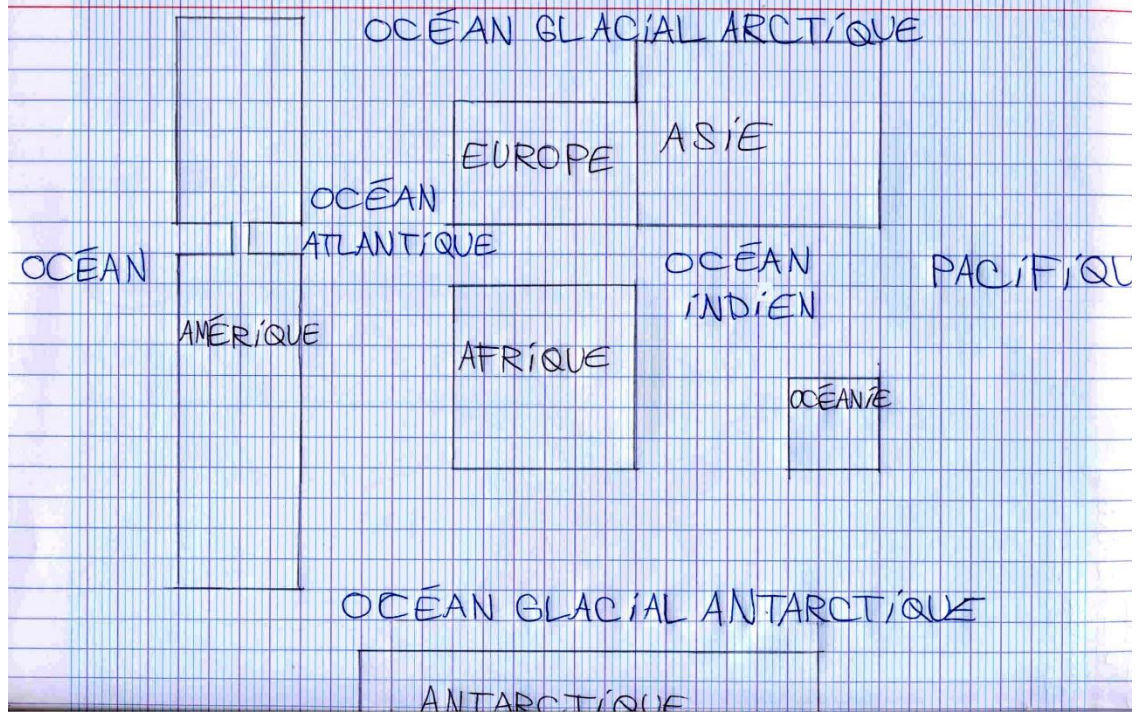 OCÉAN GLACIAL ARCTIQUE
EUROPE
ASIE
OCÉAN
ATLANTIQUE
OCÉAN
OCÉAN
INDIEN
PACIFIQU
AMÉRIQUE
AFRIQUE
OCÉANIE
OCÉAN GLACIAL ANTARCTIQUE
ANTARCTIQUE